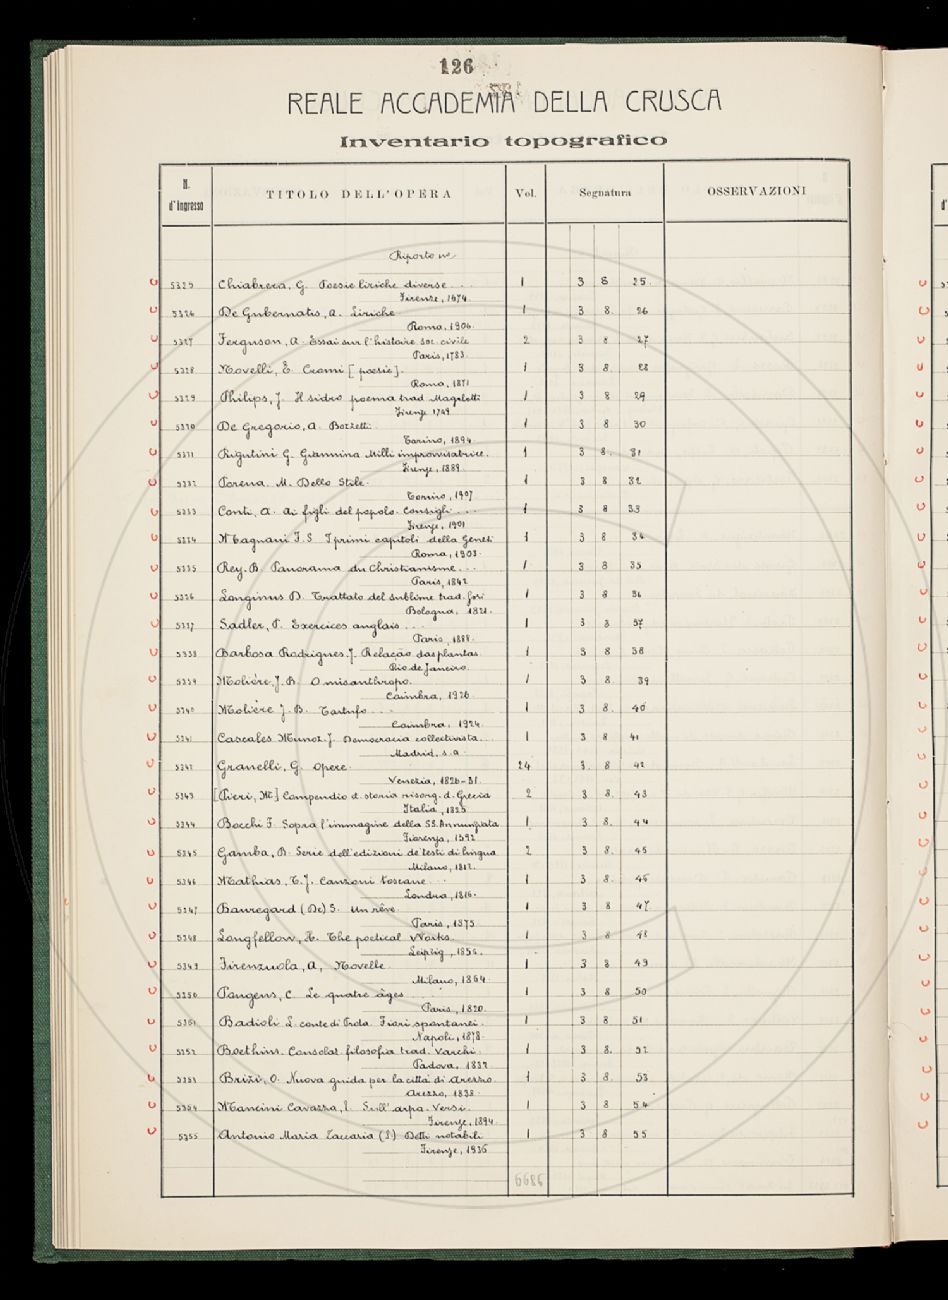 126
REALE ACCADEMIA DELLA CRUSCA
Inventario topografico
N. d'Ingresso TITOLO DELL'OPERA Vol. Segnatura OSSERVAZIONI
Riporto
5325 Chiabrera, G. Poesie liriche diverse... 1 3 8 25.
Firenze, 1674
5326 De Gubernatis, A. Liriche 1 3 8. 26
Roma, 1906.
5327 Ferguson, A. Essai sur l'histoire soc. civile 2 3 8 27
Paris, 1783.
5328 Novelli, E. Cromi [poesie]. 1 3 8. 28
Roma, 1871
5329 Philips, J. Il sidro poema trad. Magalotti 1 3 8 29
Firenze 1749
5330 De Gregorio, A. Bozzetti. 1 3 8 30
Torino, 1894
5331 Rigutini G. Giannina Milli improvvisatrice. 1 3 8. 31
Firenze, 1889.
5332 Porena. M. Dello Stile. 1 3 8 32
Torino, 1907
5333 Conti, A. Ai figli del popolo. Consigli... 1 3 8 33
Firenze, 1901
5334 Magnani F. S I primi capitoli della Genesi 1 3 8 34
Roma, 1903.
5335 Rey. B. Panorama du Christianisme... 1 3 8 35
Paris, 1842
5336 Longinus D. Trattato del sublime trad. Gori 1 3 8 36
Bologna, 1821.
5337 Sadler, P. Exercices anglais... 1 3 8 37
Paris, 1889.
5338 Barbosa Rodrigues. J. Relação das plantas. 1 3 8 38
Rio de Janeiro.
5339 Molière, J. B. O misanthropo. 1 3 8. 39
Coimbra, 1926.
5340 Molière J. B. Tartufo... 1 3 8. 40
Coimbra, 1924.
5341 Cascales Munoz. J. Democracia collectivista... 1 3 8 41
Madrid, s. a.
5342 Granelli, G. Opere. 24 3. 8 42
Venezia, 1826-31.
5343 [Pieri, M.] Compendio d. storia risorg. d. Grecia 2 3 8. 43
Italia, 1825
5344 Bocchi F. Sopra l'immagine della SS. Annunziata 1 3 8. 44
Fiorenza, 1592
5345 Gamba, B. Serie dell'edizioni de' testi di lingua 2 3 8. 45
Milano, 1812.
5346 Mathias, T. J. Canzoni toscane... 1 3 8. 46
Londra, 1816.
5347 Bauregard (De) S. Un rêve. 1 3 8 47
Paris, 1875
5348 Longfellow, H. The poetical Works. 1 3 8 48
Leipzig, 1856.
5349 Firenzuola, A, Novelle. 1 3 8 49
Milano, 1864
5350 Pangens, C. Le quatre âges... 1 3 8 50
Paris, 1820.
5351 Badioli L. conte di Prola. Fiori spontanei. 1 3 8 51
Napoli, 1878.
5352 Boethius. Consolat. filosofia trad. Varchi. 1 3 8. 52
Padova, 1832
5353 Brizi, O. Nuova guida per la città di Arezzo 1 3 8. 53
Arezzo, 1838.
5354 Mancini Cavazza, E. Sull'arpa. Versi. 1 3 8 54
Firenze, 1894
5355 Antonio Maria Zaccaria (S) Detti notabili 1 3 8 55
Firenze, 1936
6686